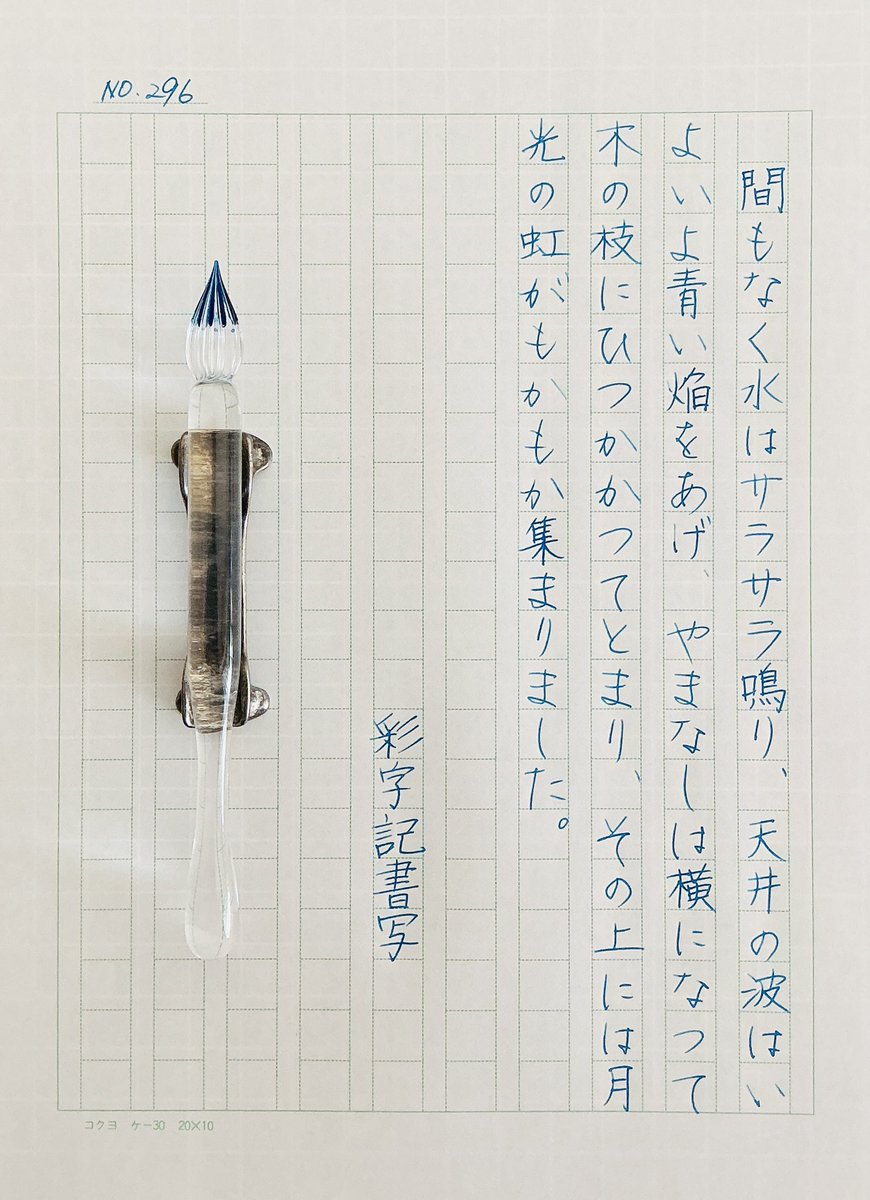 NO.296
間もなく水はサラサラ鳴り、天井の波はい
よいよ青い焔をあげ、やまなしは横になつて
木の枝にひつかかつてとまり、その上には月
光の虹がもかもか集まりました。
彩字記書写
コクヨ ケー30 20×10